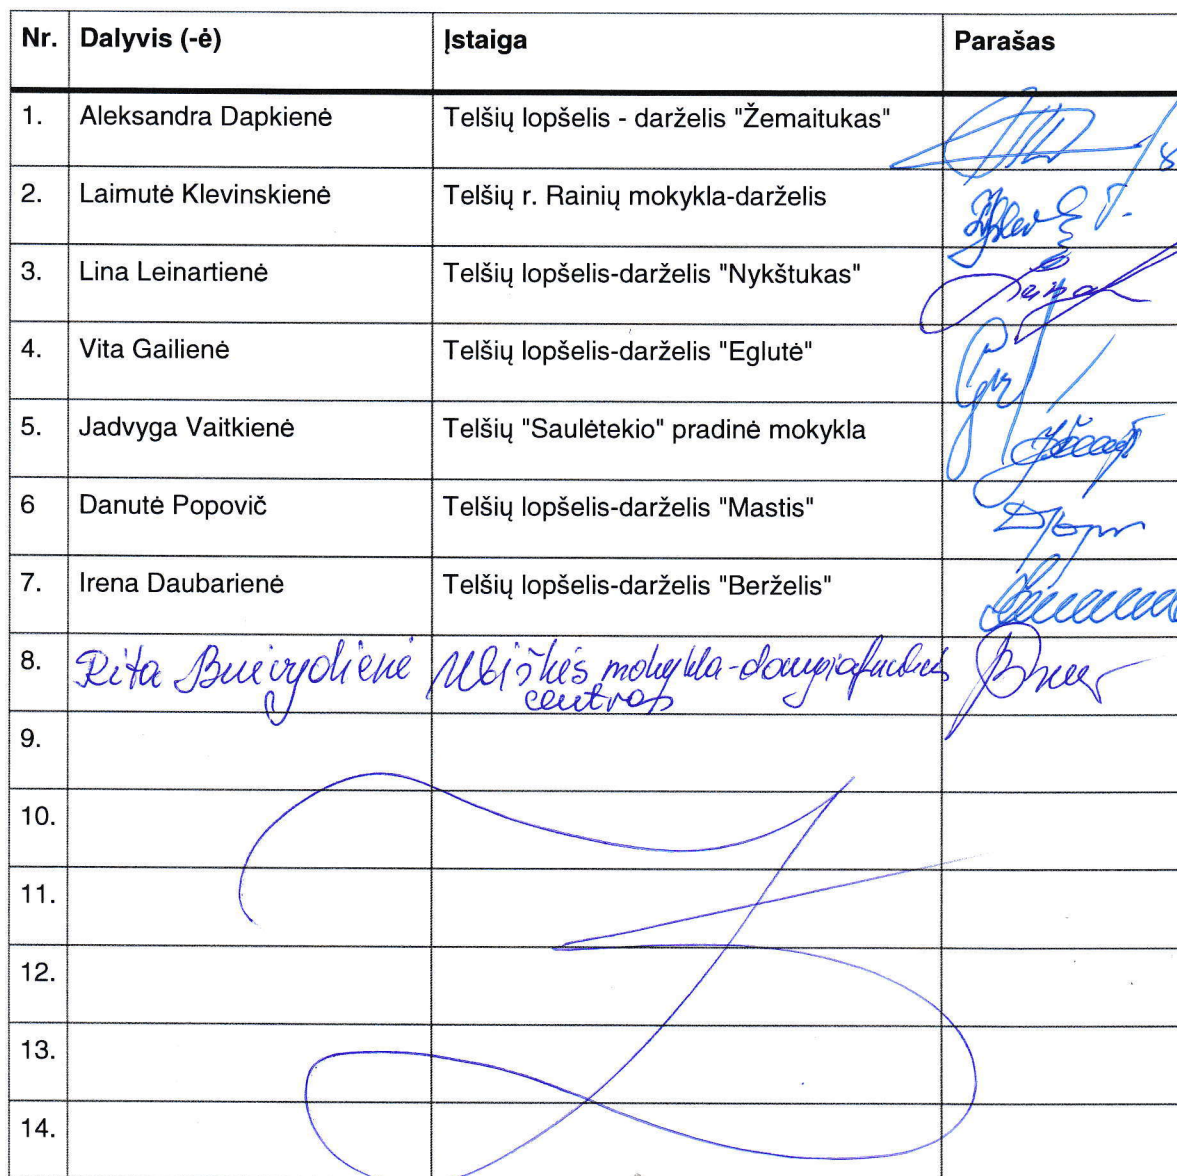 Nr. Dalyvis (-ė) Įstaiga Parašas
1. Aleksandra Dapkienė Telšių lopšelis - darželis "Žemaitukas"
2. Laimutė Klevinskienė Telšių r. Rainių mokykla-darželis
3. Lina Leinartienė Telšių lopšelis-darželis "Nykštukas"
4. Vita Gailienė Telšių lopšelis-darželis "Eglutė"
5. Jadvyga Vaitkienė Telšių "Saulėtekio" pradinė mokykla
6 Danutė Popovič Telšių lopšelis-darželis "Mastis"
7. Irena Daubarienė Telšių lopšelis-darželis "Berželis"
8. Rita Buivydienė Ubiškės mokykla-daugiafunkcis
centras
9.
10.
11.
12.
13.
14.